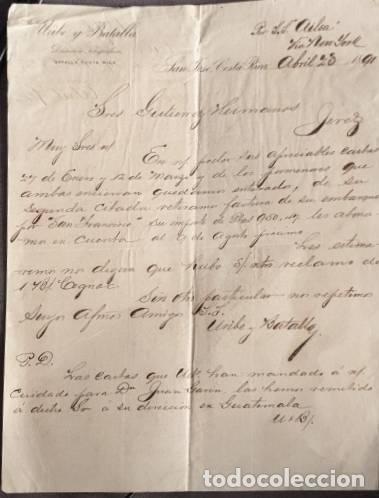 Uribe y Batalla
Por S.S. "Ailsa"
Via New York
San José, Costa Rica Abril 23 1891
Sres Gutierrez Hermanos
Jerez
Muy Sres n/
En n/ poder sus apreciables cartas
27 de Enero y 12 de Marzo y de los pormenores que
ambas encierran quedamos enterados, de su
segunda citada retiramos factura de su embarque
por "San Francisco" su importe de Ptas 950, les abona
mos en cuenta al de Agosto proximo.
Les estima
remos no digan que hubo s/ ntro reclamo de
1 Cognac
Sin otro particular nos repetimos
Suyos Afmos Amigos S.S.
Uribe y Batalla
P.D.
Las cartas que Uds. han mandado á n/
cuidado para Dn Juan hemos remitido
á dicho Sor a su direccion en Guatemala
U & B/.
todocoleccion